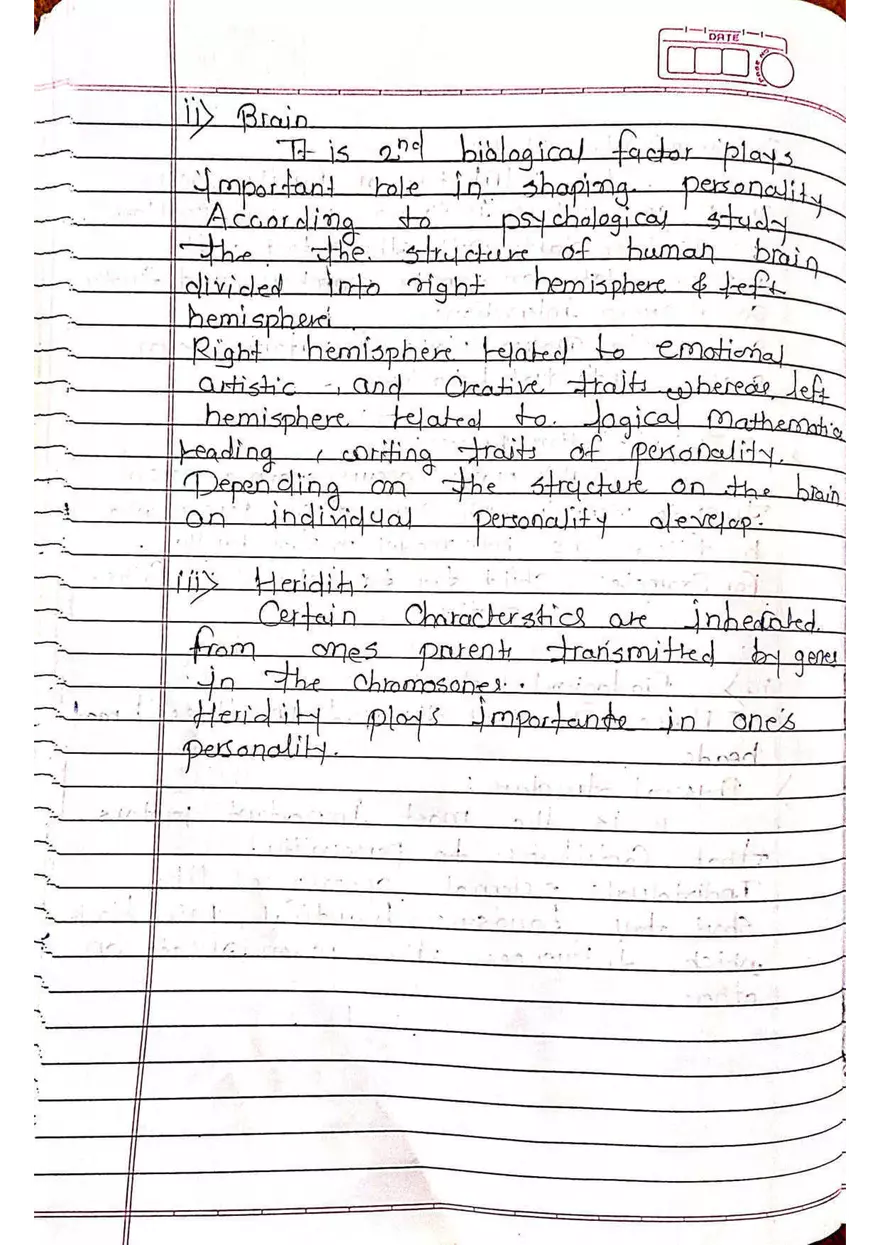 DATE
PAGE NO
ii> Brain
It is 2nd biological factor plays
Important role in shaping personality
According to psychological study
the the structure of human brain
divided into right hemisphere & left
hemisphere.
Right hemisphere related to emotional
artistic , and Creative traits whereas left
hemisphere related to logical Mathematic
reading , writing traits of personality.
Depending on the structure on the brain
an individual personality develop.
iii> Heridity:
Certain Characterstics are
from ones parents transmitted by genes
in the Chromosones.
Heridity plays importante in one's
personality.